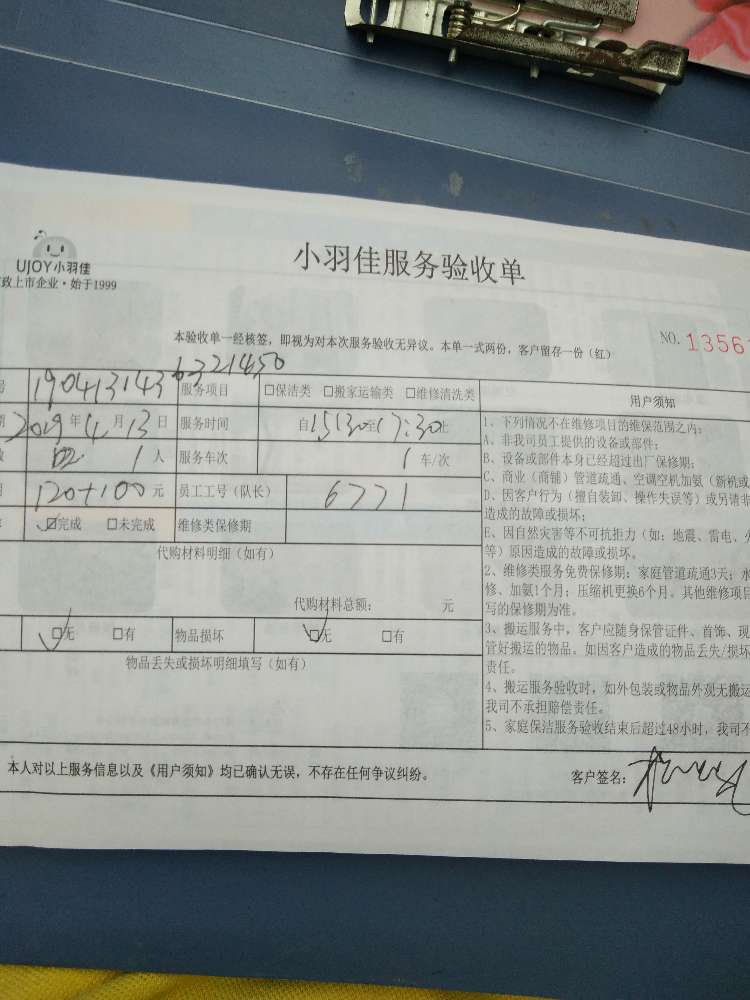 UJOY小羽佳
政上市企业·始于1999
小羽佳服务验收单
本验收单一经核签，即视为对本次服务验收无异议。本单一式两份，客户留存一份（红）
NO. 13561
号 190413143 6321450 服务项目 □保洁类 □搬家运输类 □维修清洗类
期 2019年4月13日 服务时间 自15:30至17:30止
1人 服务车次 1车/次
120+100元 员工工号（队长） 6771
☑完成 □未完成 维修类保修期
代购材料明细（如有）
代购材料总额： 元
☑无 □有 物品损坏 ☑无 □有
物品丢失或损坏明细填写（如有）
用户须知
1、下列情况不在维修项目的维保范围之内：
A、非我司员工提供的设备或部件；
B、设备或部件本身已经超过出厂保修期；
C、商业（商铺）管道疏通、空调空机加氨（新机或
D、因客户行为（擅自装卸、操作失误等）或另请非
造成的故障或损坏；
E、因自然灾害等不可抗拒力（如：地震、雷电、火
等）原因造成的故障或损坏。
2、维修类服务免费保修期：家庭管道疏通3天；水
修、加氨1个月；压缩机更换6个月。其他维修项目
写的保修期为准。
3、搬运服务中，客户应随身保管证件、首饰、现
管好搬运的物品。如因客户造成的物品丢失/损坏
责任。
4、搬运服务验收时，如外包装或物品外观无搬运
我司不承担赔偿责任。
5、家庭保洁服务验收结束后超过48小时，我司不
本人对以上服务信息以及《用户须知》均已确认无误，不存在任何争议纠纷。
客户签名：